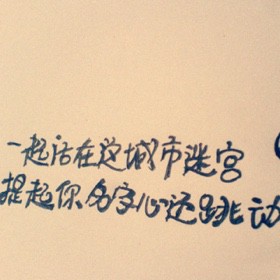 一起活在这城市迷宫
提起你名字心还跳动